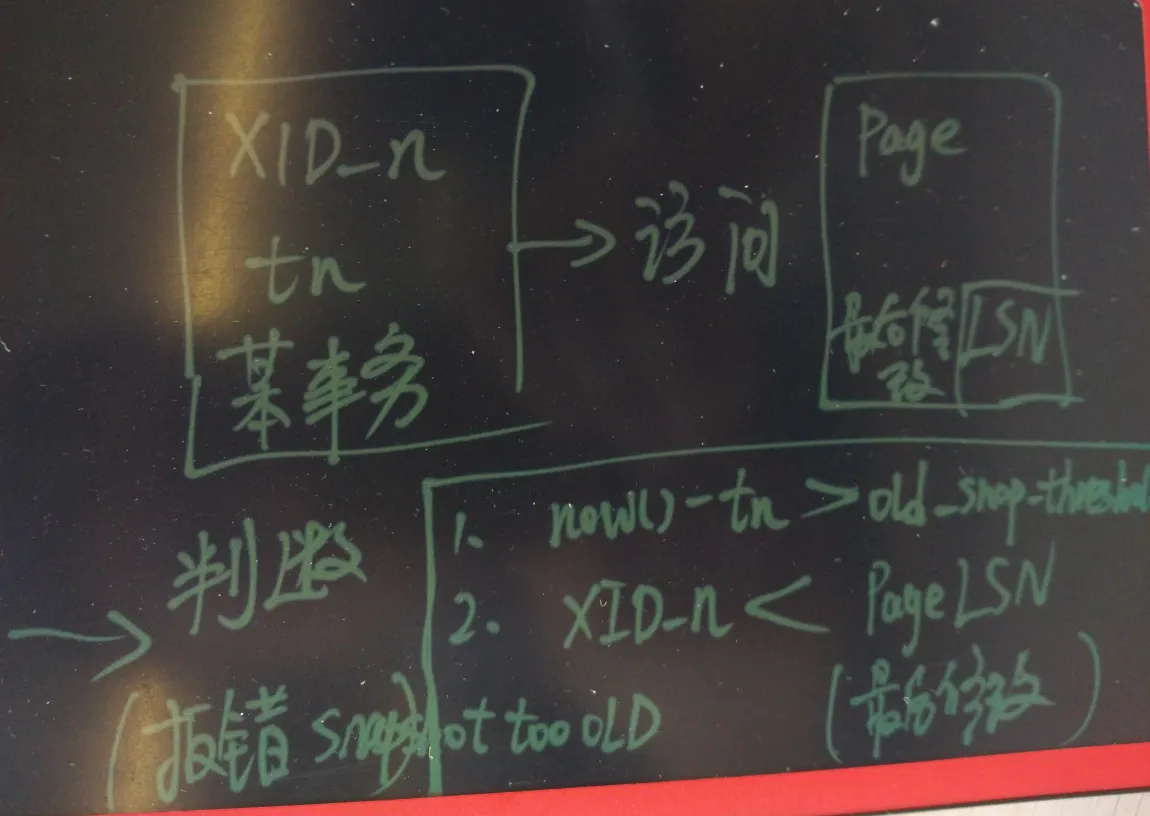 XID_n
tn
某事务
→ 访问
Page
最后修改
LSN
→ 判断
(报错 snapshot too OLD
1. now()-tn > old_snap_threshold
2. XID_n < Page LSN
(最后修改)